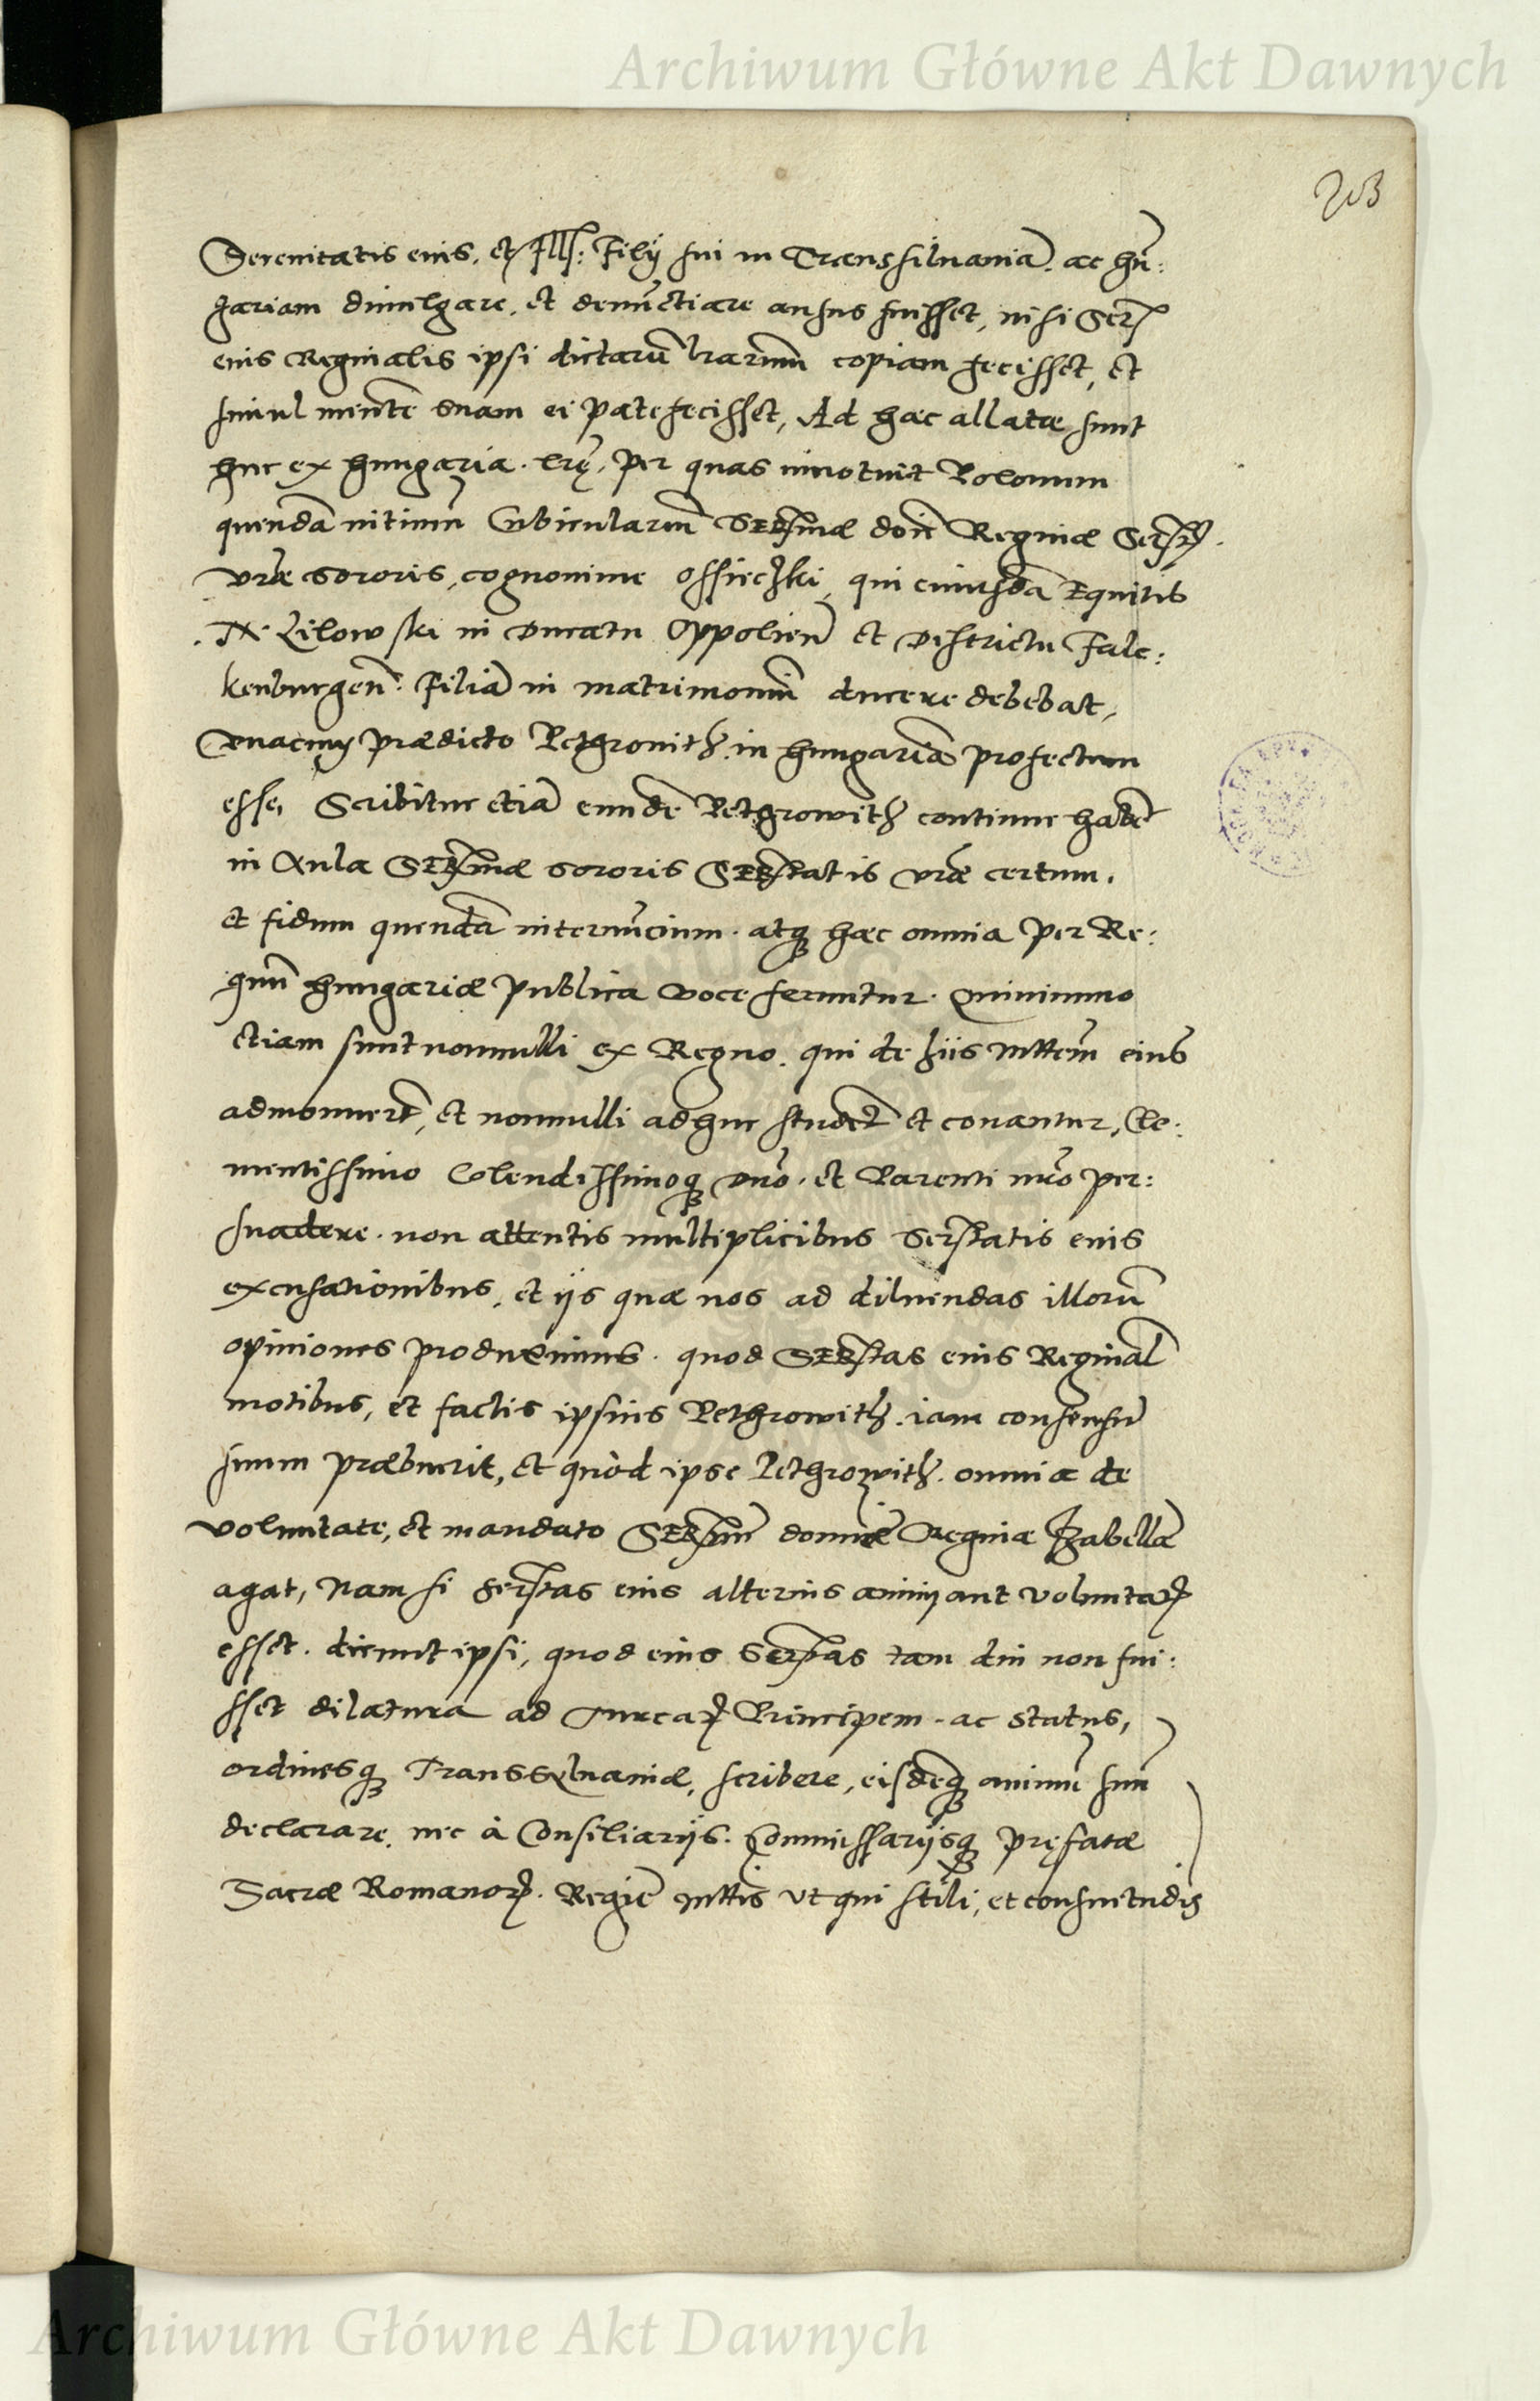 Archiwum Główne Akt Dawnych
203
Serenitatis eius, et Ill: Filij sui in Transsilvaniā. ac Hū:
gariam diuulgare, et denūctiare ausus fuisset, nisi Ser
eius Reginalis ipsi dictarū lrarum copiam fecisset, et
simul mentē suam ei patefecisset, Ad haec allatae sunt
huc ex Hungaria. lrę, per quas innotuit Polonum
quendā intimū Cubiculariū Sermae doīe Reginae Ser
vrae sororis, cognomine Ossieczki, qui cuiusdā Equitis
N. Lilowski in Ducatu Oppolień et Districtu Falc:
kenburgeń. Filiā in matrimoniū ducere debebat,
vnacum praedicto Pethrouith. in Hungariā profectum
esse, Scribitur etiā eundē Pethrowith continue habē
in Aula Sermae sororis Sertatis vrae certum.
et fidum quendā internūcium. atq haec omnia per Re:
gnū Hungariae publica voce feruntur. Quinimmo
etiam sunt nonnulli ex Regno. qui de hiis Mttem eius
admonuerūt, et nonnulli adhuc studēt et conantur, Cle:
mentissimo Colendissimoq Dno. et Parenti nro per:
suadere. non attentis multiplicibus Sertatis eius
excusationibus, et ijs quae nos ad diluendas illorū
opiniones produximus. quod Sertas eius Reginal
motibus, et factis ipsius Pethrowith. iam consensū
suum praebuerit, et quòd ipse Pethrowith. omnia de
voluntate, et mandato Sermae dominae Reginae Izabellae
agat, Nam si Sertas eius alterius animi aut voluntat
esset. dicunt ipsi, quod eius Sertas tam diu non fui:
sset dilatura ad Turcar Principem. ac Status,
ordinesq Transsyluaniae, scribere, eisdēq animū suū
declarare. nec à Consiliarijs. Commissarijsq pręfatae
Sacrae Romanor. Regie Mttis vt qui stili, et consuetudis
Archiwum Główne Akt Dawnych